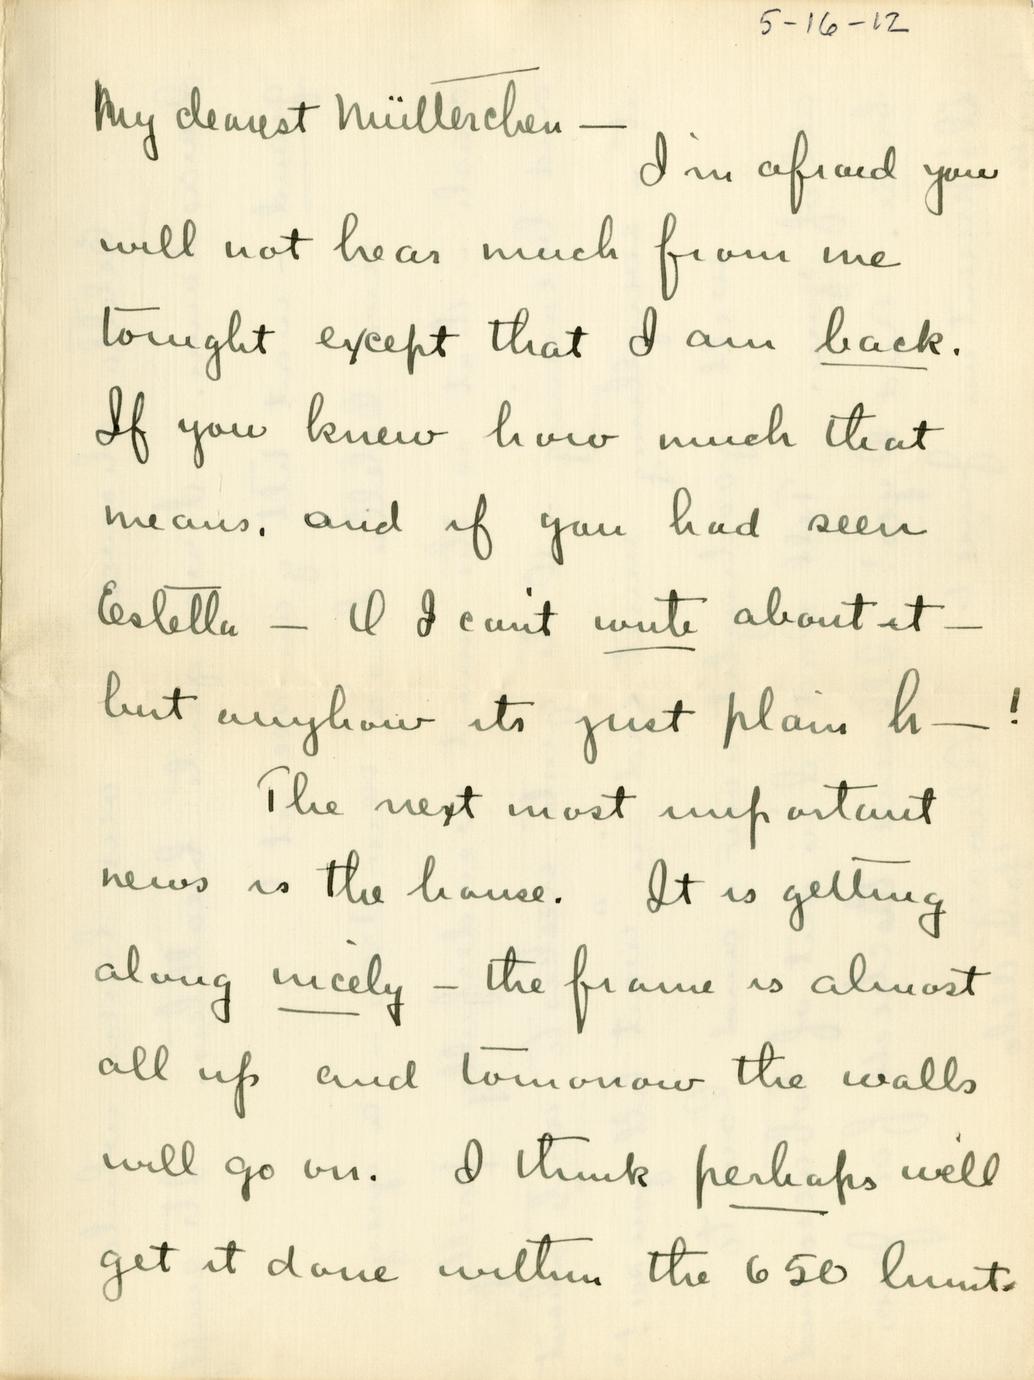 5-16-12
My dearest Mütterchen —
I'm afraid you
will not hear much from me
tonight except that I am back.
If you knew how much that
means, and if you had seen
Estella — I can't write about it —
but anyhow its just plain h— !
The next most important
news is the house. It is getting
along nicely – the frame is almost
all up and tomorrow the walls
will go on. I think perhaps we'll
get it done within the 650 limit.